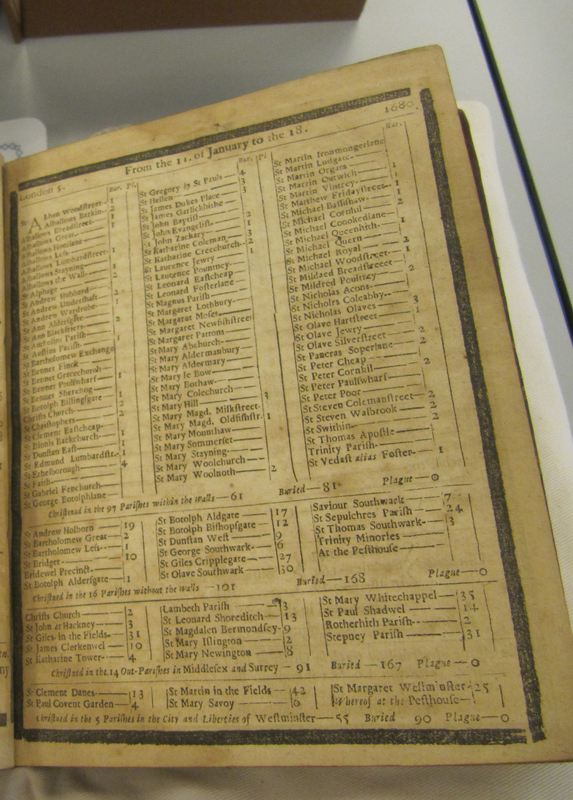 London 5. From the 11. of January to the 18. 1680
Bur. Pl.
St Alban Woodstreet 1
Alhallows Barkin 2
Alhallows Breadstreet 1
Alhallows Great
Alhallows Honilane
Alhallows Less
Alhallows Lumbardstreet 1
Alhallows Stayning
Alhallows the Wall
St Alphage
St Andrew Hubbard
St Andrew Undershaft
St Andrew Wardrobe
St Ann Aldersgate
St Ann Blackfriers
St Antholins Parish
St Austins Parish
St Bartholomew Exchange
St Bennet Finck
St Bennet Gracechurch
St Bennet Paulswharf
St Bennet Sherehog
St Botolph Billingsgate
Christs Church
St Christophers
St Clement Eastcheap
St Dionis Backchurch
St Dunstan East
St Edmund Lumbardstr.
St Ethelborough
St Faith
St Gabriel Fenchurch
St George Botolphlane
Bur. Pl
St Gregory by St Pauls 4
St Hellen 3
St James Dukes Place 3
St James Garlickhithe
St John Baptist
St John Evangelist
St John Zachary
St Katharine Coleman 3
St Katharine Creechurch 2
St Laurence Jewry 1
St Laurence Pountney
St Leonard Eastcheap
St Leonard Fosterlane
St Magnus Parish
St Margaret Lothbury
St Margaret Moses
St Margaret Newfishstreet
St Margaret Pattons
St Mary Abchurch
St Mary Aldermanbury
St Mary Aldermary
St Mary le Bow
St Mary Bothaw
St Mary Colechurch
St Mary Hill 3
St Mary Magd. Milkstreet
St Mary Magd. Oldfishstr. 1
St Mary Mounthaw
St Mary Sommerset
St Mary Stayning
St Mary Woolchurch
St Mary Woolnoth 2
Bur.
St Martin Ironmongerlane
St Martin Ludgate
St Martin Orgars
St Martin Outwich
St Martin Vintrey
St Matthew Fridaystreet
St Michael Bassishaw
St Michael Cornhil
St Michael Crookedlane
St Michael Queenhith
St Michael Quern
St Michael Royal
St Michael Woodstreet
St Mildred Breadstreet
St Mildred Poultrey
St Nicholas Acons
St Nicholas Coleabby
St Nicholas Olaves
St Olave Hartstreet
St Olave Jewry
St Olave Silverstreet
St Pancras Soperlane
St Peter Cheap
St Peter Cornhil
St Peter Paulswharf
St Peter Poor
St Steven Colemanstreet 2
St Steven Walbrook 2
St Swithin 2
St Thomas Apostle
Trinity Parish
St Vedast alias Foster 1
Christned in the 97 Parishes within the Walls 61 Buried 81 Plague 0
St Andrew Holborn 19
St Bartholomew Great 2
St Bartholomew Less 1
St Bridget 10
Bridewel Precinct
St Botolph Aldersgate 1
St Botolph Aldgate 17
St Botolph Bishopsgate 12
St Dunstan West 9
St George Southwark 6
St Giles Cripplegate 27
St Olave Southwark 30
Saviour Southwark 7
St Sepulchres Parish 24
St Thomas Southwark 3
Trinity Minories
At the Pesthouse
Christned in the 16 Parishes without the Walls 101 Buried 168 Plague 0
Christs Church 2
St John at Hackney 3
St Giles in the Fields 31
St James Clerkenwel 19
St Katharine Tower 4
Lambeth Parish 3
St Leonard Shoreditch 13
St Magdalen Bermondsey 9
St Mary Islington 2
St Mary Newington 8
St Mary Whitechappel 35
St Paul Shadwel 14
Rotherhith Parish 2
Stepney Parish 31
Christned in the 14 Out-Parishes in Middlesex and Surrey 91 Buried 167 Plague 0
St Clement Danes 13
St Paul Covent Garden 4
St Martin in the Fields 42
St Mary Savoy 6
St Margaret Westminster 25
Whereof at the Pesthouse
Christned in the 5 Parishes in the City and Liberties of Westminster 55 Buried 90 Plague 0